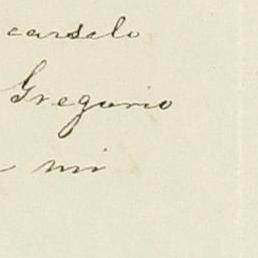 carselo
Gregorio
mi